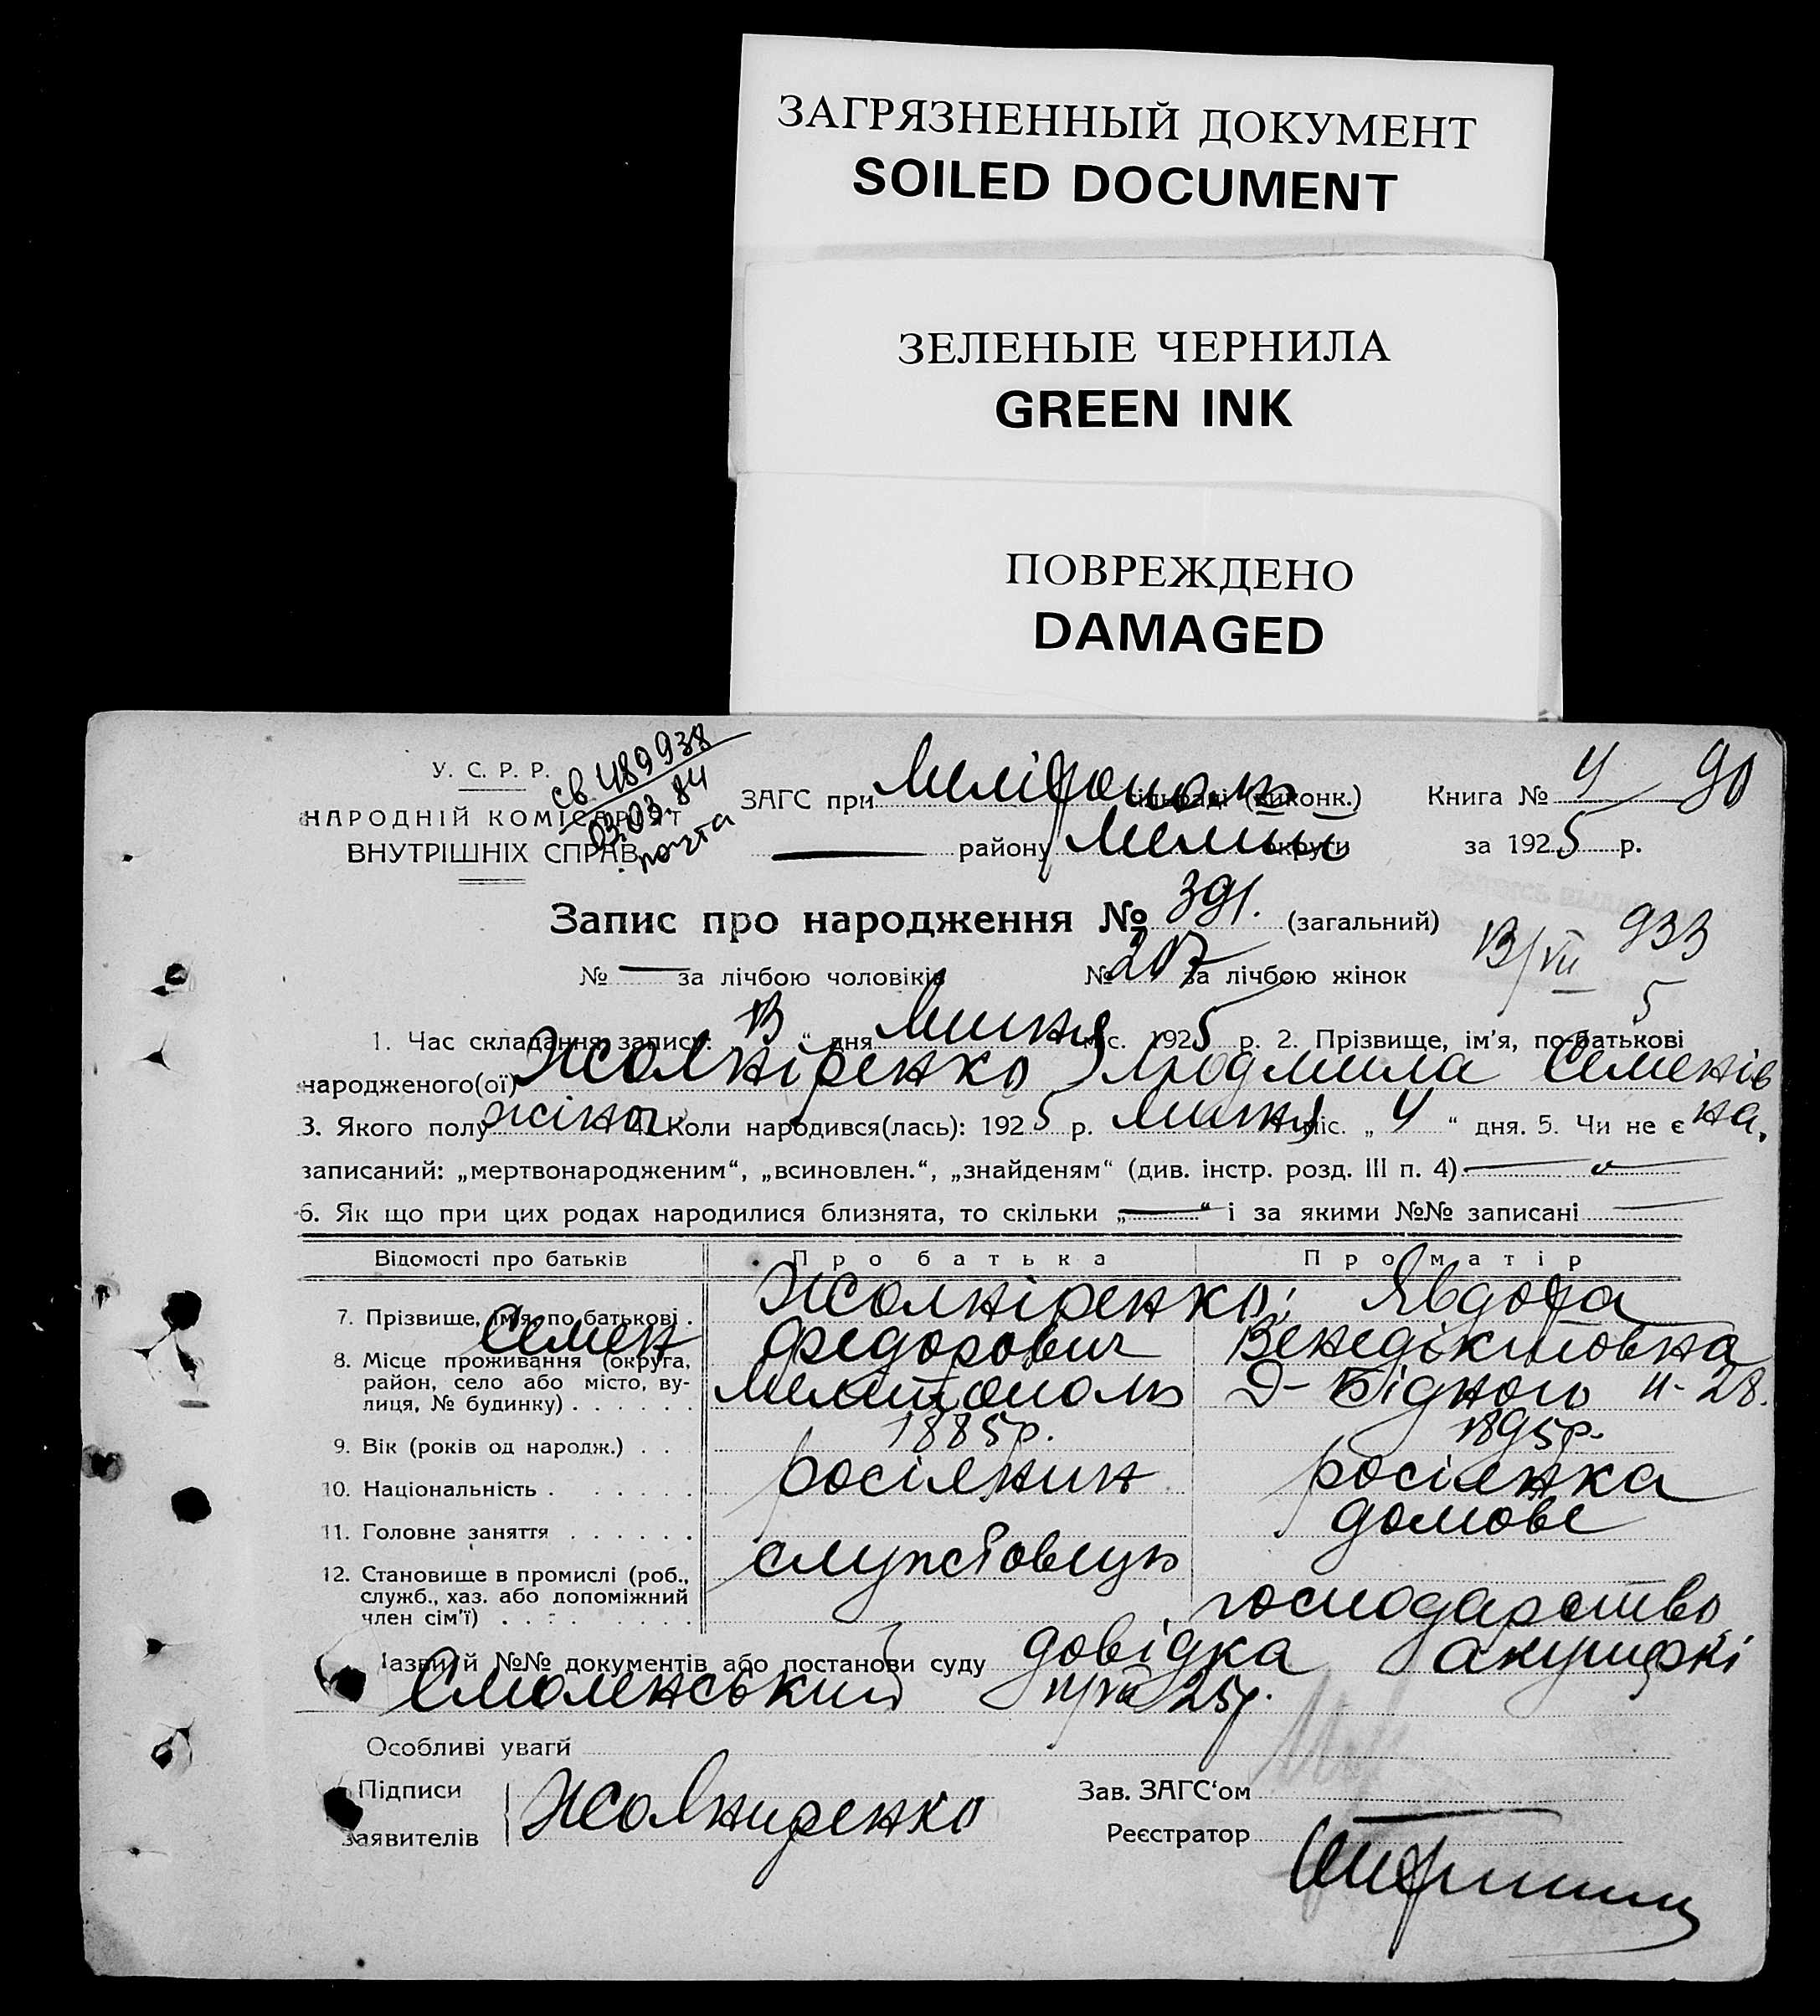 ЗАГРЯЗНЕННЫЙ ДОКУМЕНТ
SOILED DOCUMENT
ЗЕЛЕНЫЕ ЧЕРНИЛА
GREEN INK
ПОВРЕЖДЕНО
DAMAGED
У. С. Р. Р.
НАРОДНІЙ КОМІСАРІЯТ
ВНУТРІШНІХ СПРАВ
св 489938
03.03.84
почта
ЗАГС при сільраді (виконк.) Книга № 4 90
— району округи за 1925 р.
Запис про народження № 391. (загальний)
№ — за лічбою чоловіків № 207 за лічбою жінок
13/VII 933
5
1. Час складання запису: 13 “ дня Липня міс. 1925 р. 2. Прізвище, ім'я, по-батькові
народженого(ої) Жолніренко Людмила Семенів
на.
3. Якого полу жіноч 4. Коли народився(лась): 1925 р. Липня міс. „ 4 “ дня. 5. Чи не є
записаний: „мертвонародженим“, „всиновлен.“, „знайденям“ (див. інстр. розд. III п. 4) —
6. Як що при цих родах народилися близнята, то скільки „—“ і за якими №№ записані —
Відомості про батьків Про батька Про матір
7. Прізвище, ім'я, по-батькові . Жолніренко; Явдоха
Семен Федорович Венедіктовна
8. Місце проживання (округа, район, село або місто, ву-
лиця, № будинку) . . . . . . Мелитополь Д-Бідного 4-28.
9. Вік (років од народж.) . . . 1885р. 1895р.
10. Національність . . . . . . росіянин росіянка
11. Головне заняття . . . . . . домове
12. Становище в промислі (роб., службовець
служб., хаз. або допоміжний господарство
член сім'ї) . . . . . . .
Назви й №№ документів або постанови суду довідка акушерки
Смоленський 25р.
Особливі уваги
Підписи
заявителів Жолниренко
Зав. ЗАГС'ом
Реєстратор